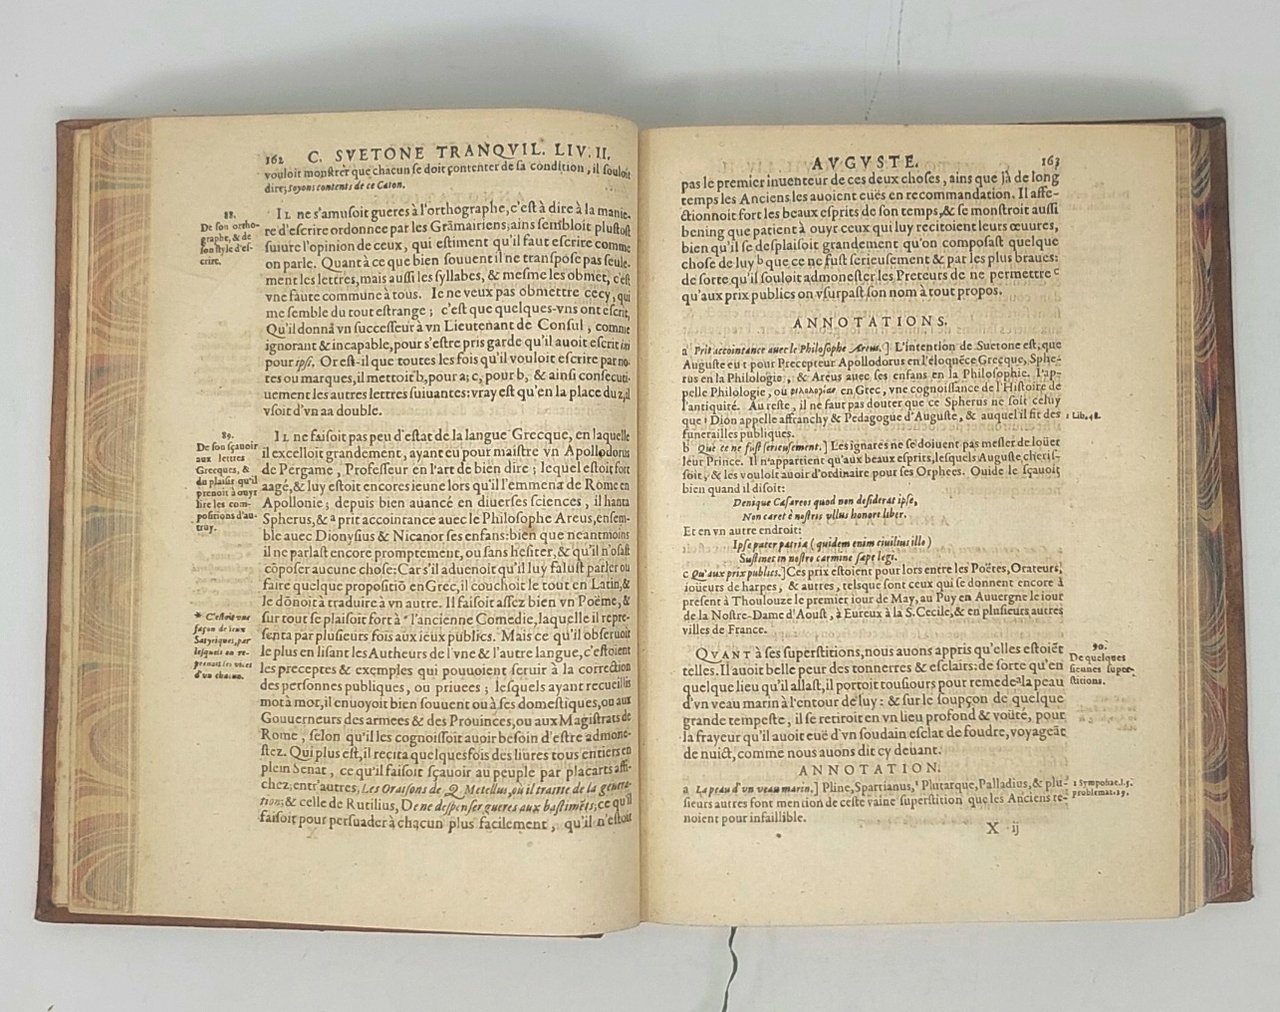 162 C. SVETONE TRANQVIL. LIV. II.
vouloit monſtrer que chacun ſe doit contenter de ſa condition, il ſouloit
dire; ſoyons contents de ce Caton.
88.
De ſon ortho-
graphe, & de
ſon ſtyle d'eſ-
crire.
IL ne s'amuſoit gueres à l'orthographe, c'eſt à dire à la manie-
re d'eſcrire ordonnee par les Grãmairiens; ains ſembloit pluſtoſt
ſuiure l'opinion de ceux, qui eſtiment qu'il faut eſcrire comme
on parle. Quant à ce que bien ſouuent il ne tranſpoſe pas ſeule-
ment les lettres, mais auſſi les ſyllabes, & meſme les obmet, c'eſt
vne faute commune à tous. Ie ne veux pas obmettre cecy, qui
me ſemble du tout eſtrange; c'eſt que quelques-vns ont eſcrit,
Qu'il donna vn ſucceſſeur à vn Lieutenant de Conſul, comme
ignorant & incapable, pour s'eſtre pris garde qu'il auoit eſcrit ixi
pour ipſi. Or eſt-il que toutes les fois qu'il vouloit eſcrire par no-
tes ou marques, il mettoit b, pour a; c, pour b, & ainſi conſecuti-
uement les autres lettres ſuiuantes: vray eſt qu'en la place du z, il
vſoit d'vn aa double.
89.
De ſon ſçauoir
aux lettres
Grecques, &
du plaiſir qu'il
prenoit à ouyr
lire les com-
poſitions d'au-
truy.
IL ne faiſoit pas peu d'eſtat de la langue Grecque, en laquelle
il excelloit grandement, ayant eu pour maiſtre vn Apollodorus
de Pergame, Profeſſeur en l'art de bien dire; lequel eſtoit fort
aagé, & luy eſtoit encores ieune lors qu'il l'emmena de Rome en
Apollonie; depuis bien auancé en diuerſes ſciences, il hanta
Spherus, & a prit accointance auec le Philoſophe Areus, enſem-
ble auec Dionyſius & Nicanor ſes enfans: bien que neantmoins
il ne parlaſt encore promptement, ou ſans heſiter, & qu'il n'oſaſt
cõpoſer aucune choſe; Car s'il aduenoit qu'il luy faluſt parler ou
faire quelque propoſitiõ en Grec, il couchoit le tout en Latin, &
le dõnoit à traduire à vn autre. Il faiſoit aſſez bien vn Poëme, &
ſur tout ſe plaiſoit fort à * l'ancienne Comedie, laquelle il repre-
ſenta par pluſieurs fois aux ieux publics. Mais ce qu'il obſeruoit
le plus en liſant les Autheurs de l'vne & l'autre langue, c'eſtoient
les preceptes & exemples qui pouuoient ſeruir à la correction
des perſonnes publiques, ou priuees; leſquels ayant recueillis
mot à mot, il enuoyoit bien ſouuent ou à ſes domeſtiques, ou aux
Gouuerneurs des armees & des Prouinces, ou aux Magiſtrats de
Rome, ſelon qu'il les cognoiſſoit auoir beſoin d'eſtre admone-
ſtez. Qui plus eſt, il recita quelquesfois des liures tous entiers en
plein Senat, ce qu'il faiſoit ſçauoir au peuple par placarts affi-
chez, entr'autres, Les Oraiſons de Q. Metellus, où il traitte de la genera-
tion; & celle de Rutilius, De ne deſpenſer gueres aux baſtimẽts; ce qu'il
faiſoit pour perſuader à chacun plus facilement, qu'il n'eſtoit
* C'eſtoit vne
façon de ieux
Satyriques, par
leſquels on re-
prenoit les vices
d'vn chacun.
AVGVSTE. 163
pas le premier inuenteur de ces deux choſes, ains que jà de long
temps les Anciens les auoient euës en recommandation. Il affe-
ctionnoit fort les beaux eſprits de ſon temps, & ſe monſtroit auſſi
bening que patient à ouyr ceux qui luy recitoient leurs œuures,
bien qu'il ſe desplaiſoit grandement qu'on compoſaſt quelque
choſe de luy b que ce ne fuſt ſerieuſement & par les plus braues:
de ſorte qu'il ſouloit admoneſter les Preteurs de ne permettre c
qu'aux prix publics on vſurpaſt ſon nom à tout propos.
ANNOTATIONS.
a Prit accointance auec le Philoſophe Areus.] L'intention de Suetone eſt, que
Auguſte eut pour Precepteur Apollodorus en l'éloquẽce Grecque, Sphe-
rus en la Philologie, & Areus auec ſes enfans en la Philoſophie. I'ap-
pelle Philologie, ou φιλολογίαν en Grec, vne cognoiſſance de l'Hiſtoire de
l'antiquité. Au reſte, il ne faut pas douter que ce Spherus ne ſoit celuy
que 1 Dion appelle affranchy & Pedagogue d'Auguſte, & auquel il fit des
funerailles publiques.
1 Lib. 48.
b Que ce ne fuſt ſerieuſement.] Les ignares ne ſe doiuent pas meſler de loüer
leur Prince. Il n'appartient qu'aux beaux eſprits, leſquels Auguſte cheriſ-
ſoit, & les vouloit auoir d'ordinaire pour ſes Orphees. Ouide le ſçauoit
bien quand il diſoit:
Denique Cæſareos quod non deſiderat ipſe,
Non caret è noſtris vllus honore liber.
Et en vn autre endroit:
Ipſe pater patriæ (quidem enim ciuilius illo)
Suſtinet in noſtro carmine ſæpe legi.
c Qu'aux prix publics.] Ces prix eſtoient pour lors entre les Poëtes, Orateurs,
ioüeurs de harpes, & autres, telsque ſont ceux qui ſe donnent encore à
preſent à Thoulouze le premier iour de May, au Puy en Auuergne le iour
de la Noſtre-Dame d'Aouſt, à Eureux à la S. Cecile, & en pluſieurs autres
villes de France.
QVANT à ſes ſuperſtitions, nous auons appris qu'elles eſtoiẽt
telles. Il auoit belle peur des tonnerres & eſclairs: de ſorte qu'en
quelque lieu qu'il allaſt, il portoit touſiours pour remede a la peau
d'vn veau marin à l'entour de luy: & ſur le ſoupçon de quelque
grande tempeſte, il ſe retiroit en vn lieu profond & voûté, pour
la frayeur qu'il auoit euë d'vn ſoudain eſclat de foudre, voyageãt
de nuict, comme nous auons dit cy deuant.
90.
De quelques
ſiennes ſuper-
ſtitions.
ANNOTATION.
a La peau d'vn veau marin.] Pline, Spartianus, 1 Plutarque, Palladius, & plu-
ſieurs autres font mention de ceſte vaine ſuperſtition que les Anciens te-
noient pour infaillible.
1 Sympoſiac. l. 5.
problemat. 29.
X ij